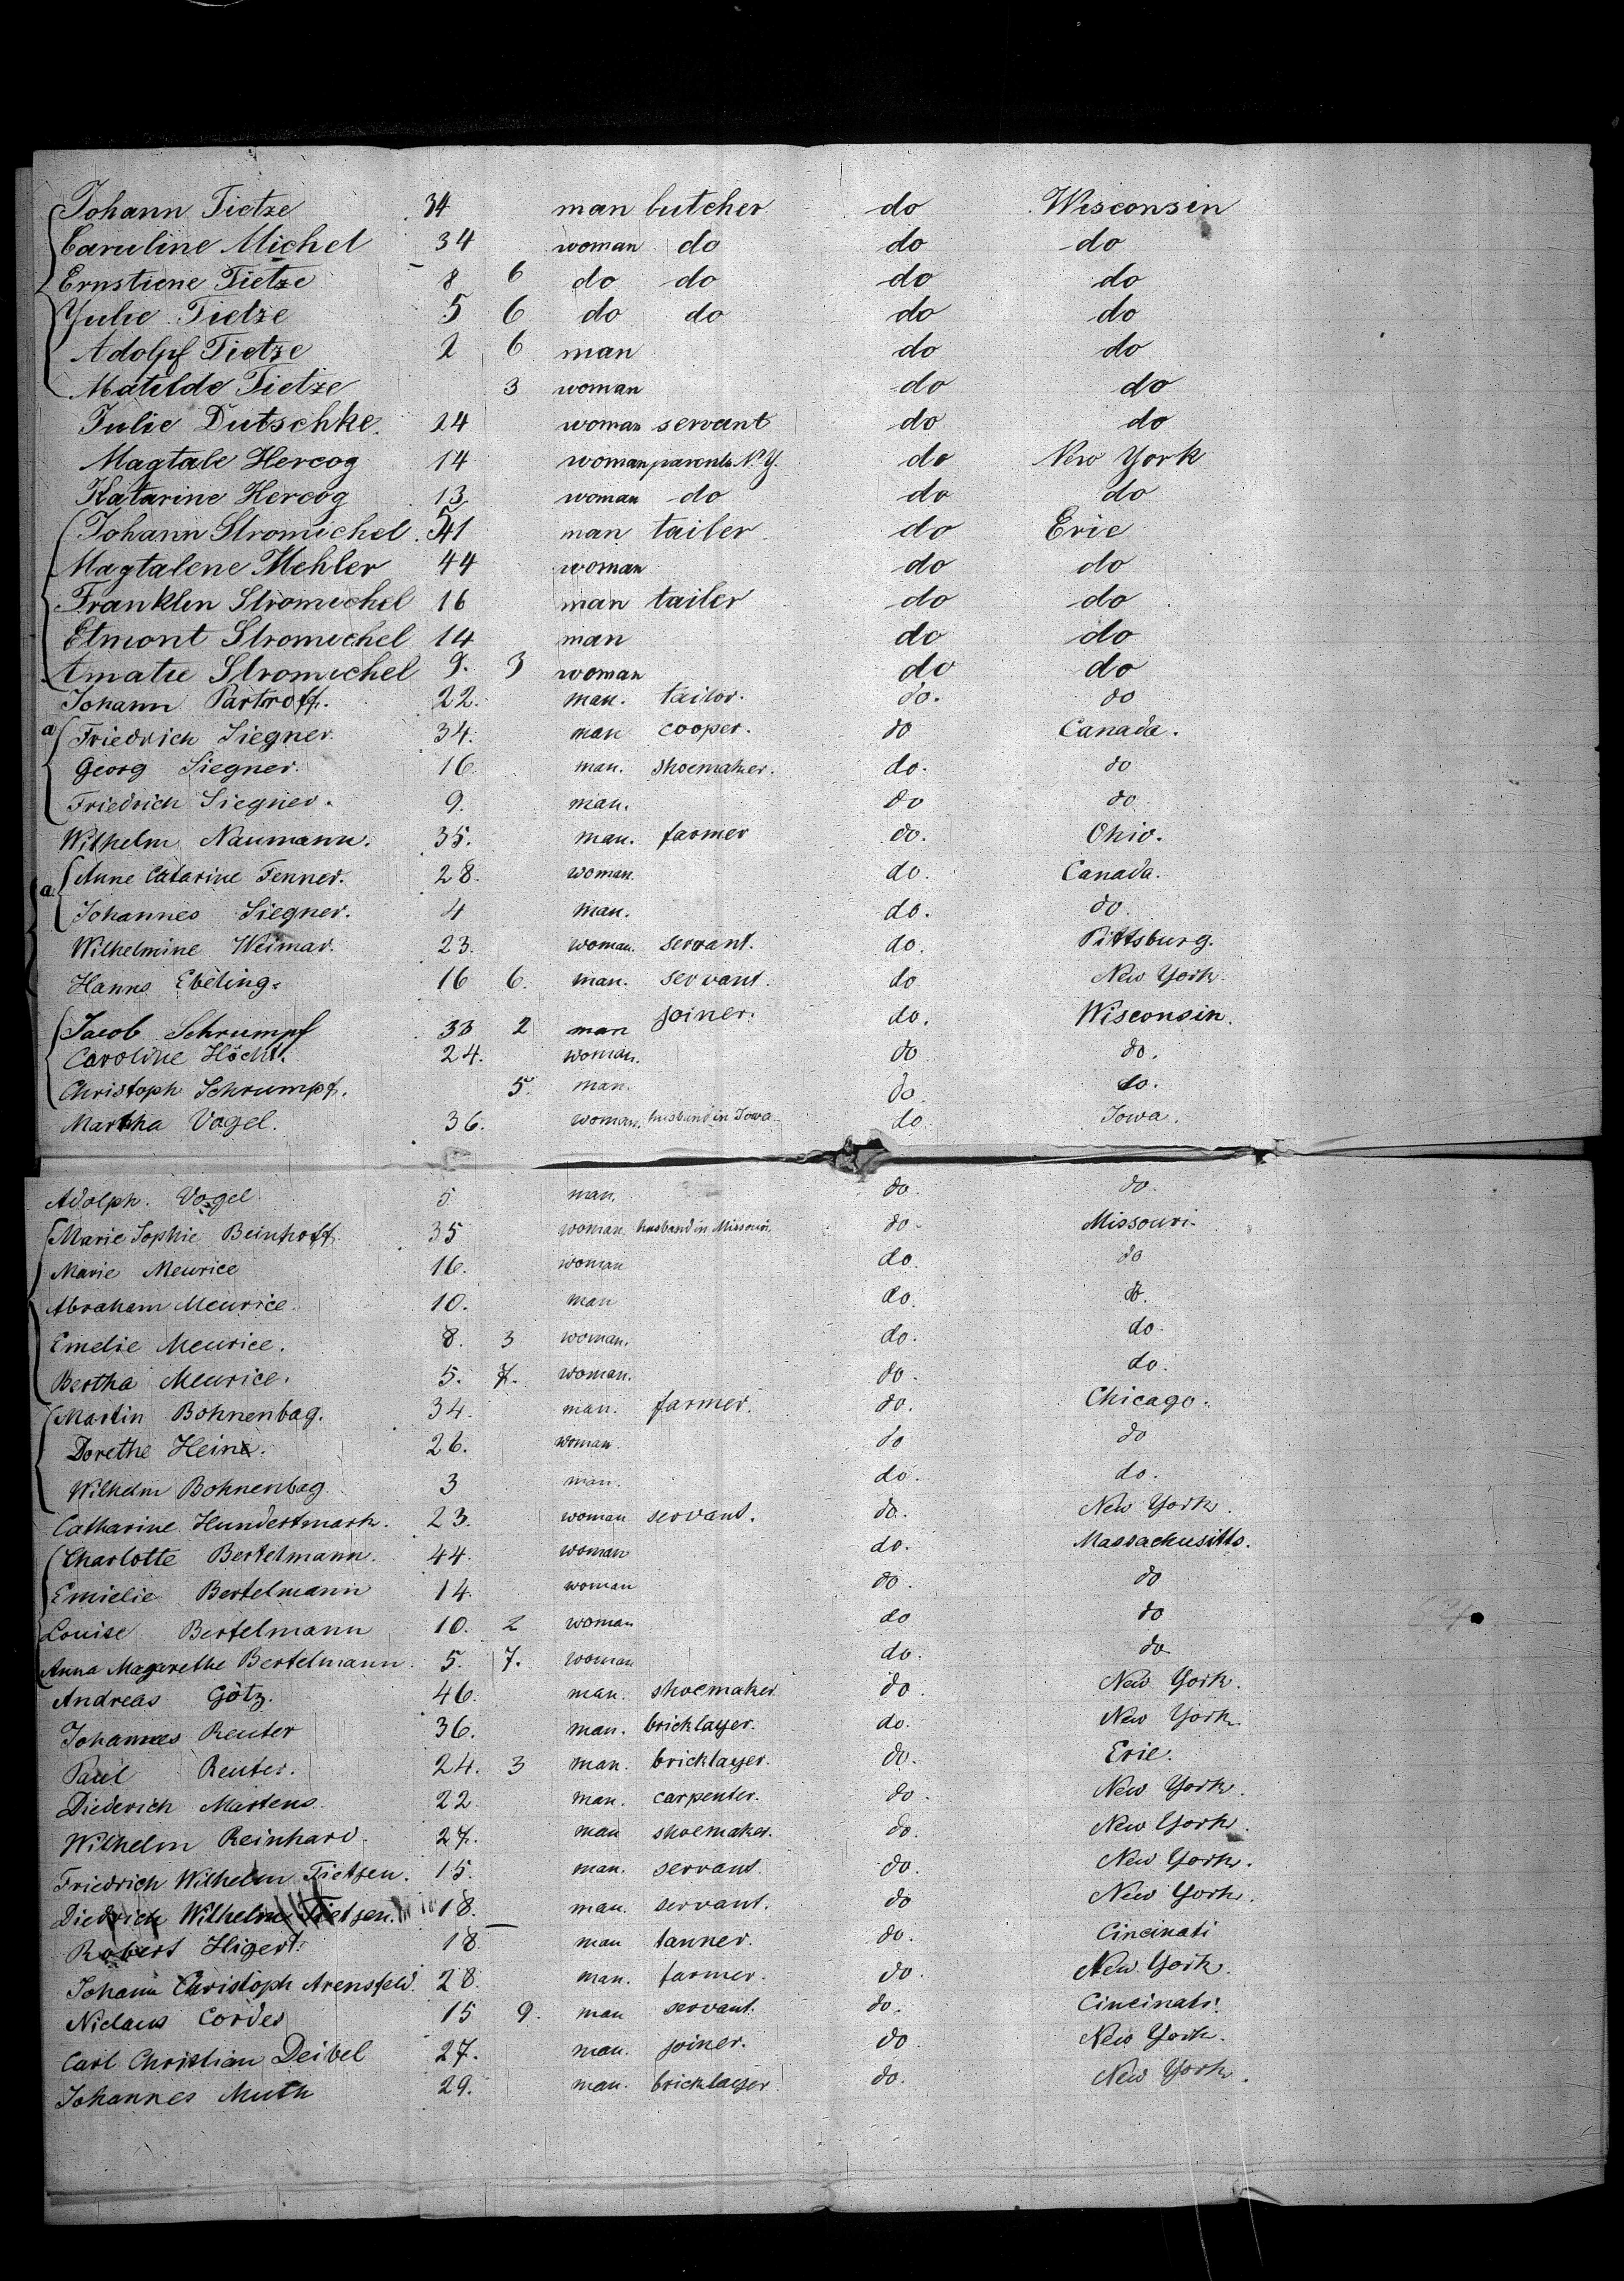 Johann Tietze 34 man butcher do Wisconsin
Caruline Michel 34 woman do do do
Ernstiene Tietze 8 6 do do do do
Julie Tietze 5 6 do do do do
Adolpf Tietze 2 6 man do do
Matilde Tietze 3 woman do do
Julie Dutschke. 24 woman servant do do
Magtale Hercog 14 woman parents N.Y. do New York
Katarine Hercog 13 woman do do do
Johann Stromichel 41 man tailer do Erie
Magtalene Mehler 44 woman do do
Franklin Stromichel 16 man tailer do do
Etmont Stromichel 14 man do do
Amatie Stromichel 9. 3 woman do do
Johann Partroff. 22. man. tailor. do. do
a Friedrich Siegner. 34. man cooper. do Canada.
Georg Siegner. 16. man. shoemaker. do. do
Friedrich Siegner. 9. man. do do
Wilhelm Naumann. 35. man. farmer do. Ohio.
a Anne Catarine Fenner. 28. woman. do. Canada.
Johannes Siegner. 4 man. do. do.
Wilhelmine Weimar. 23. woman. servant. do. Pittsburg.
Hanns Ebeling. 16 6. man. servant. do New York.
Jacob Schrumpf 33 2 man joiner. do. Wisconsin.
Caroline Höcht. 24. woman. do do.
Christoph Schrumpf. 5. man. do. do.
Martha Vogel. 36. woman. husband in Iowa. do Iowa.
Adolph. Vogel 5 man. do. do.
Marie Sophie Beinhoff. 35 woman. husband in Missouri. do. Missouri.
Marie Meurice 16. woman do. do
Abraham Meurice. 10. man do. do.
Emelie Meurice. 8. 3 woman. do. do.
Bertha Meurice. 5. 7. woman. do. do.
Martin Bohnenbag. 34. man. farmer. do. Chicago.
Dorethe Heine. 26. woman. do do
Wilhelm Bohnenbag 3 man. do. do.
Catharine Hundertmark. 23. woman servant. do. New York.
Charlotte Bertelmann. 44. woman do. Massachusitts.
Emielie Bertelmann 14. woman do. do
Louise Bertelmann 10. 2 woman do do
Anna Magarethe Bertelmann. 5. 7. woman do. do
Andreas Götz. 46. man. shoemaker do. New York.
Johannes Reuter 36. man. bricklayer. do. New York.
Paul Reuter. 24. 3 man. bricklayer. do. Erie.
Diederich Martens. 22. man. carpenter. do. New York.
Wilhelm Reinhard. 27. man shoemaker. do. New York.
Friedrich Wilhelm Tietjen. 15. man. servant. do. New York.
Diedrich Wilhelm Tietjen. 18. man. servant. do New York.
Robert Higert. 18 man tanner. do. Cincinati
Johann Christoph Arensfeld. 28. man. farmer. do. New York.
Niclaus Cordes 15 9. man servant. do. Cincinati.
Carl Christian Deibel 27. man. joiner. do. New York.
Johannes Muth 29. man. bricklayer. do. New York.